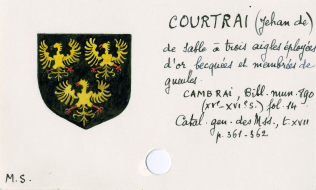 COURTRAI (Jehan de)
de sable à trois aigles éployées
d'or becquées et membrées de
gueules.
CAMBRAI, Bibl. mun. 890
(XVe-XVIe s.) fol. 14
Catal. gen. des Mss., t. XVII
p. 361-362
M.S.